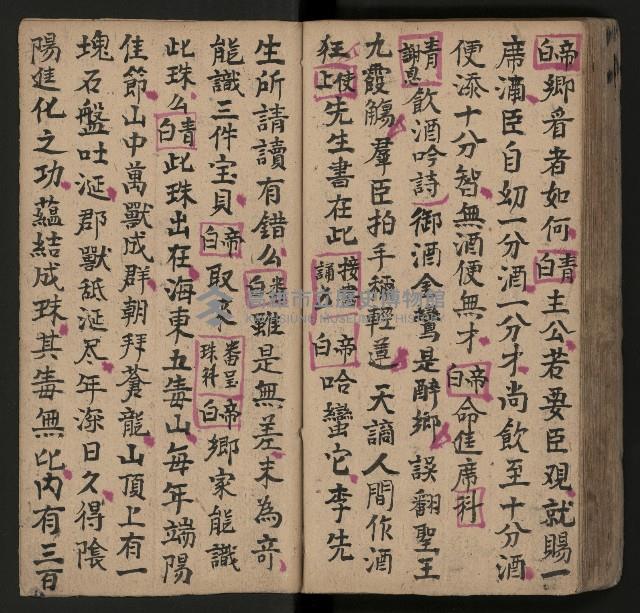 帝白鄉看者如何青白主公若要臣观就賜一
席酒臣自幼一分酒一分才尚飲至十分酒
便添十分智無酒便無才帝白命進席科
青謝恩飲酒吟詩御酒金鸞是醉鄉誤翻聖王
九霞觴羣臣拍手稱輕薄天謫人間作酒
狂使上先生書在此接書誦之帝白哈蛮它李先
生所請讀有錯么番白雖是無差未為奇
能識三件宝貝帝白取來番呈珠科帝白鄉家能識
此珠么青白此珠出在海東五毒山每年端陽
佳節山中萬獸成群朝拜蒼龍山頂上有一
塊石盤吐涎郡獸舐涎尽年深日久得陰
陽進化之功蘊結成珠其毒無比内有三百
高雄市立歷史博物館
KAOHSIUNG MUSEUM OF HISTORY